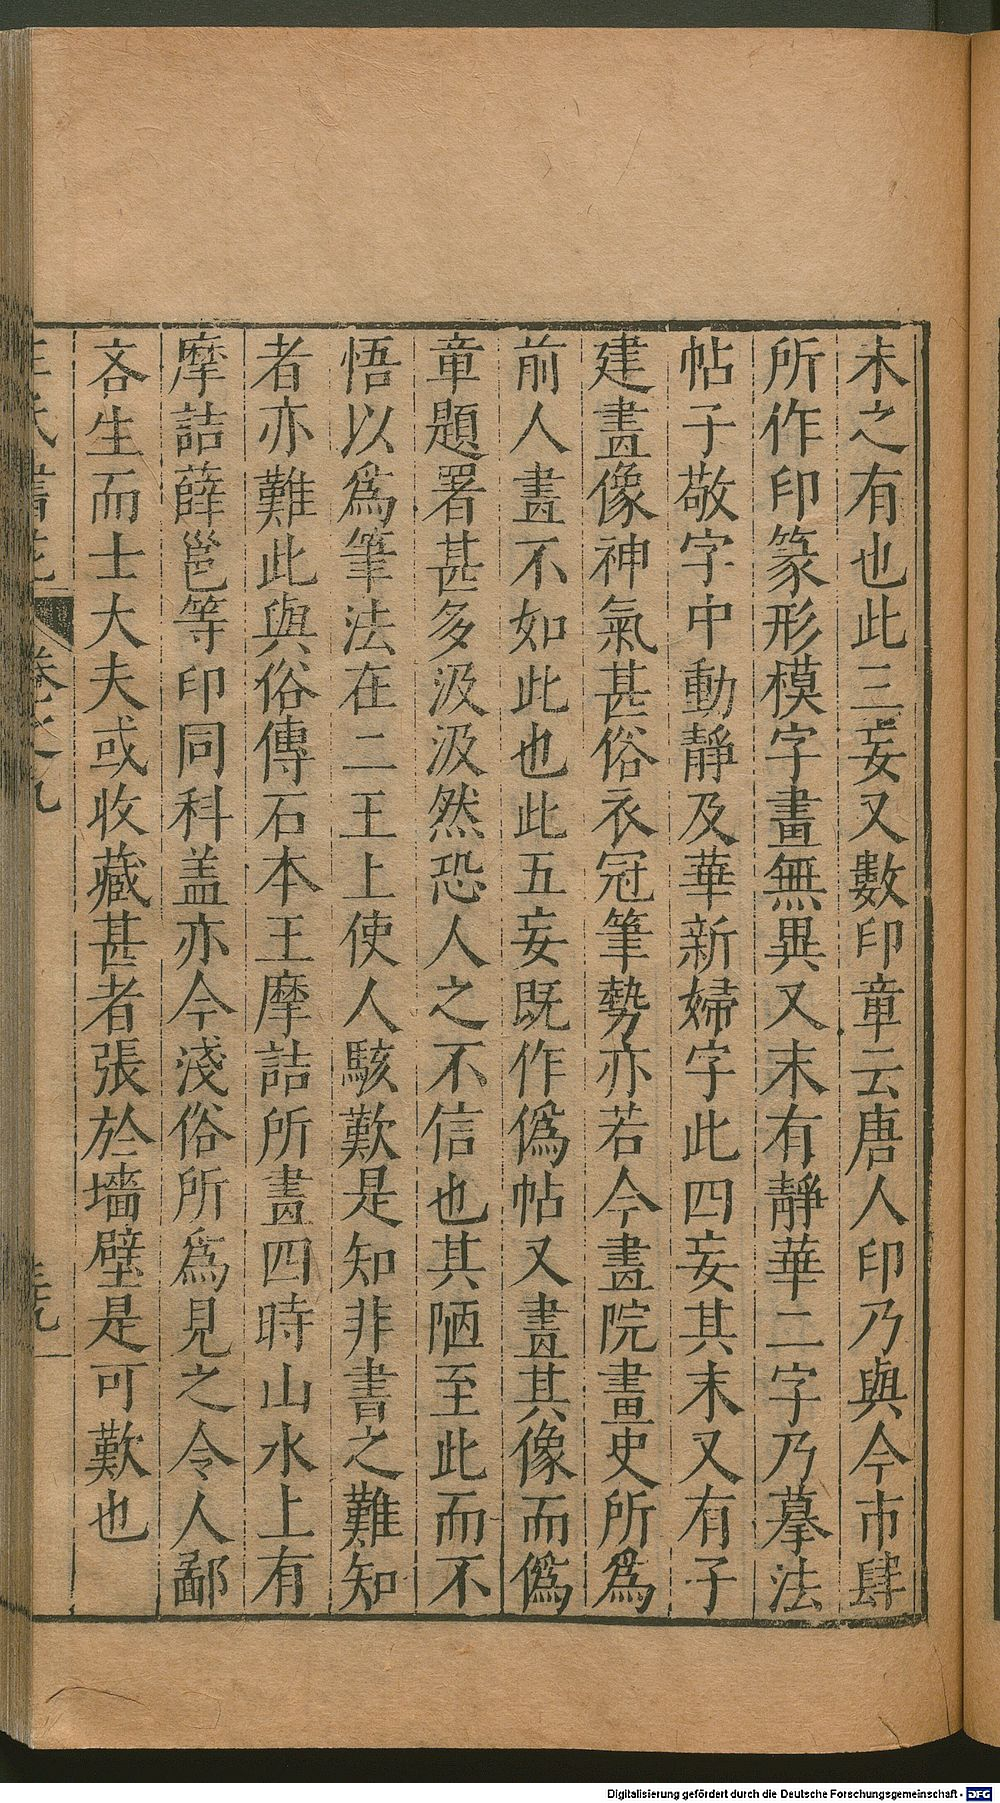 未之有也此三妄又數印章云唐人印乃與今市肆
所作印篆形模字畫無異又末有靜華二字乃摹法
帖子敬字中動靜及華新婦字此四妄其末又有子
建畫像神氣甚俗衣冠筆勢亦若今畫院畫史所爲
前人畫不如此也此五妄既作僞帖又畫其像而僞
章題署甚多汲汲然恐人之不信也其陋至此而不
悟以爲筆法在二王上使人駭歎是知非書之難知
者亦難此與俗傳石本王摩詰所畫四時山水上有
摩詰薛邕等印同科盖亦今淺俗所爲見之令人鄙
吝生而士大夫或收藏甚者張於墻壁是可歎也
王氏書苑 卷之九
Digitalisierung gefördert durch die Deutsche Forschungsgemeinschaft - DFG